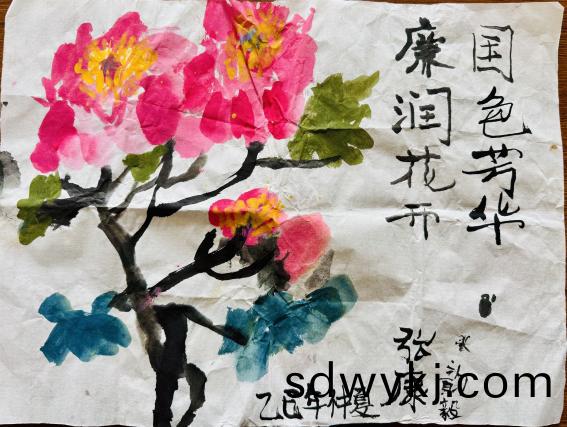 国色芳华
廉润花开
张康
乙巳年仲夏
sdwykj.com